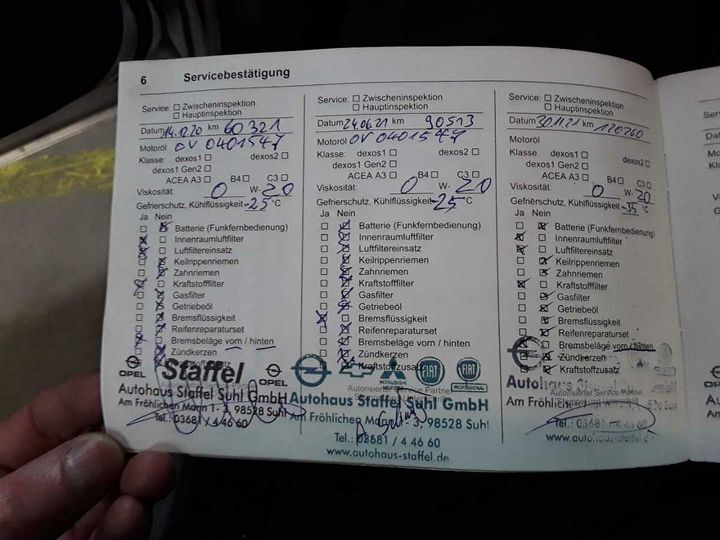 6 Servicebestätigung
Service: ☐ Zwischeninspektion
☐ Hauptinspektion
Datum 14.12.20 km 60321
Motoröl OV 0401547
Klasse: dexos1 ☐ dexos2 ☐
dexos1 Gen2 ☐
ACEA A3 ☐ B4 ☐ C3 ☐
Viskosität: 0 W- 20
Gefrierschutz, Kühlflüssigkeit -25 °C
Ja Nein
Batterie (Funkfernbedienung)
Innenraumluftfilter
Luftfiltereinsatz
Keilrippenriemen
Zahnriemen
Kraftstofffilter
Gasfilter
Getriebeöl
Bremsflüssigkeit
Reifenreparaturset
Bremsbeläge vorn / hinten
Zündkerzen
OPEL Staffel OPEL
Autohaus Staffel Suhl
Am Fröhlichen Mann 1- 3, 98528 Suhl
Tel.: 03681 / 4 46 60
Service: ☐ Zwischeninspektion
☐ Hauptinspektion
Datum 24.06.21 km 90513
Motoröl OV 0401547
Klasse: dexos1 ☐ dexos2 ☐
dexos1 Gen2 ☐
ACEA A3 ☐ B4 ☐ C3 ☐
Viskosität: 0 W- 20
Gefrierschutz, Kühlflüssigkeit -25 °C
Ja Nein
Batterie (Funkfernbedienung)
Innenraumluftfilter
Luftfiltereinsatz
Keilrippenriemen
Zahnriemen
Kraftstofffilter
Gasfilter
Getriebeöl
Bremsflüssigkeit
Reifenreparaturset
Bremsbeläge vorn / hinten
Zündkerzen
Kraftstoffzusatz
OPEL MITSUBISHI MOTORS FIAT FIAT PROFESSIONAL
Autorisierter Service Partner
Autohaus Staffel Suhl GmbH
Am Fröhlichen Mann 1- 3, 98528 Suhl
Tel.: 03681 / 4 46 60
www.autohaus-staffel.de
Service: ☐ Zwischeninspektion
☐ Hauptinspektion
Datum 30.11.21 km 120260
Motoröl
Klasse: dexos1 ☐ dexos2 ☐
dexos1 Gen2 ☐
ACEA A3 ☐ B4 ☐ C3 ☐
Viskosität: 0 W- 20
Gefrierschutz, Kühlflüssigkeit -35 °C
Ja Nein
Batterie (Funkfernbedienung)
Innenraumluftfilter
Luftfiltereinsatz
Keilrippenriemen
Zahnriemen
Kraftstofffilter
Gasfilter
Getriebeöl
Bremsflüssigkeit
Reifenreparaturset
Bremsbeläge vorn / hinten
Zündkerzen
Kraftstoffzusatz
Autorisierter Service Partner
Autohaus
Am Fröhlichen
Tel.: 03681 / 4 46 60
www.autohaus-staffel.d